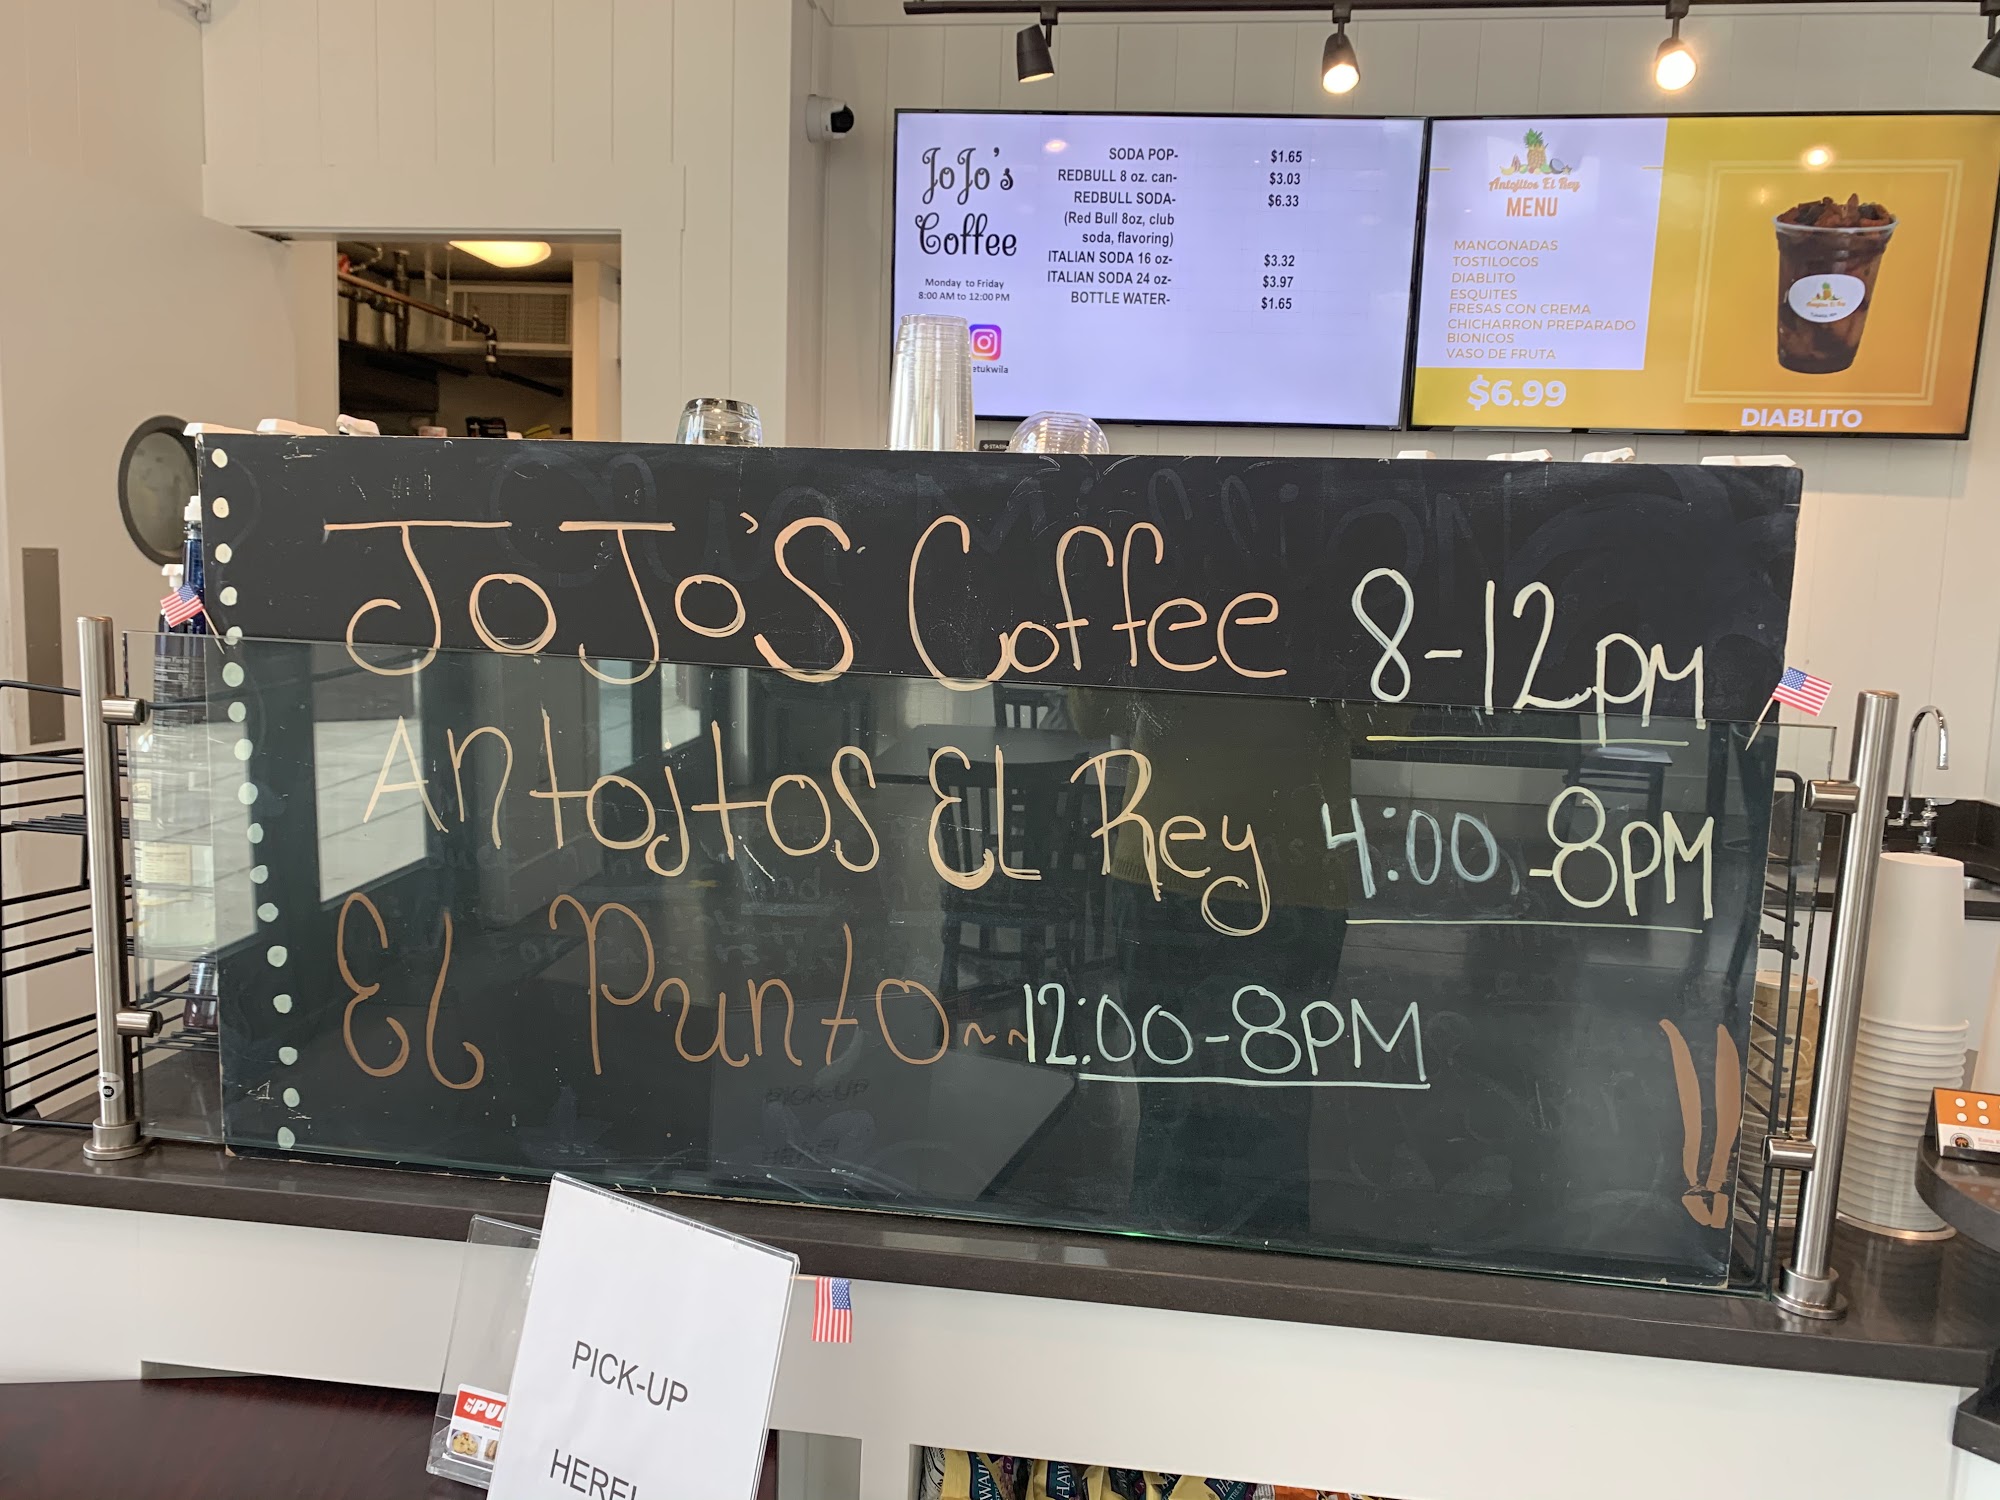 JoJo's
Coffee
Monday to Friday
8:00 AM to 12:00 PM
etukwila
SODA POP- $1.65
REDBULL 8 oz. can- $3.03
REDBULL SODA- $6.33
(Red Bull 8oz, club
soda, flavoring)
ITALIAN SODA 16 oz- $3.32
ITALIAN SODA 24 oz- $3.97
BOTTLE WATER- $1.65
Antojitos El Rey
MENU
MANGONADAS
TOSTILOCOS
DIABLITO
ESQUITES
FRESAS CON CREMA
CHICHARRON PREPARADO
BIONICOS
VASO DE FRUTA
$6.99
DIABLITO
JoJo'S Coffee 8-12pm
Antojitos El Rey 4:00-8PM
El Punto~~12:00-8PM
!!
PICK-UP
HERE!